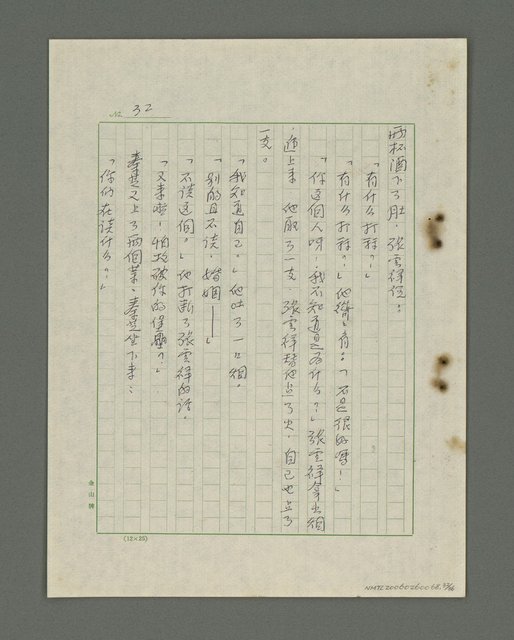 No. 32
両杯酒下了肚，張雲祥說。
「有什么打祘？」
「有什么打祘？」他聳聳肩。「不是很好嗎！」
「你這個人呀！我不知道是為什么？」張雲祥拿出烟
，遞上來，他取了一支，張雲祥替他点了火，自己也点了
一支。
「我知道自己。」他吐了一口烟。
「別的且不談，婚姻——」
「不談這個。」他打断了張雲祥的话。
「又来啦！怕攻破你的堡壘？」
秦楚又上了両個菜，秦楚坐下来：
「你们在谈什么？」
金山牌
(12×25)
NMTL20060260068.32/66